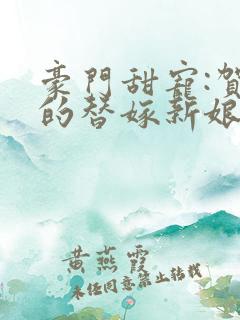 豪門甜寵:賀
的替嫁新娘
黄燕霞
未经同意禁止转载